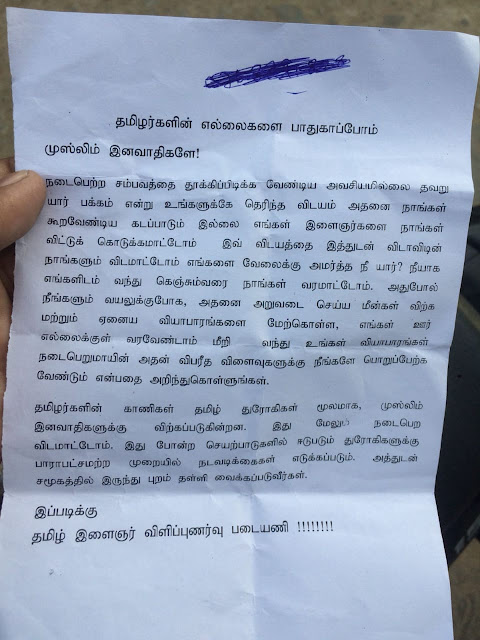 தமிழர்களின் எல்லைகளை பாதுகாப்போம்
முஸ்லிம் இனவாதிகளே!
நடைபெற்ற சம்பவத்தை தூக்கிப்பிடிக்க வேண்டிய அவசியமில்லை தவறு
யார் பக்கம் என்று உங்களுக்கே தெரிந்த விடயம் அதனை நாங்கள்
கூறவேண்டிய கடப்பாடும் இல்லை எங்கள் இளைஞர்களை நாங்கள்
விட்டுக் கொடுக்கமாட்டோம் இவ் விடயத்தை இத்துடன் விடாவிடின்
நாங்களும் விடமாட்டோம் எங்களை வேலைக்கு அமர்த்த நீ யார்? நீயாக
எங்களிடம் வந்து கெஞ்சும்வரை நாங்கள் வரமாட்டோம். அதுபோல்
நீங்களும் வயலுக்குபோக, அதனை அறுவடை செய்ய மீன்கள் விற்க
மற்றும் ஏனைய வியாபாரங்களை மேற்கொள்ள, எங்கள் ஊர்
எல்லைக்குள் வரவேண்டாம் மீறி வந்து உங்கள் வியாபாரங்கள்
நடைபெறுமாயின் அதன் விபரீத விளைவுகளுக்கு நீங்களே பொறுப்பேற்க
வேண்டும் என்பதை அறிந்துகொள்ளுங்கள்.
தமிழர்களின் காணிகள் தமிழ் துரோகிகள் மூலமாக, முஸ்லிம்
இனவாதிகளுக்கு விற்கப்படுகின்றன. இது மேலும் நடைபெற
விடமாட்டோம். இது போன்ற செயற்பாடுகளில் ஈடுபடும் துரோகிகளுக்கு
பாராபட்சமற்ற முறையில் நடவடிக்கைகள் எடுக்கப்படும். அத்துடன்
சமூகத்தில் இருந்து புறம் தள்ளி வைக்கப்படுவீர்கள்.
இப்படிக்கு
தமிழ் இளைஞர் விளிப்புணர்வு படையணி !!!!!!!!